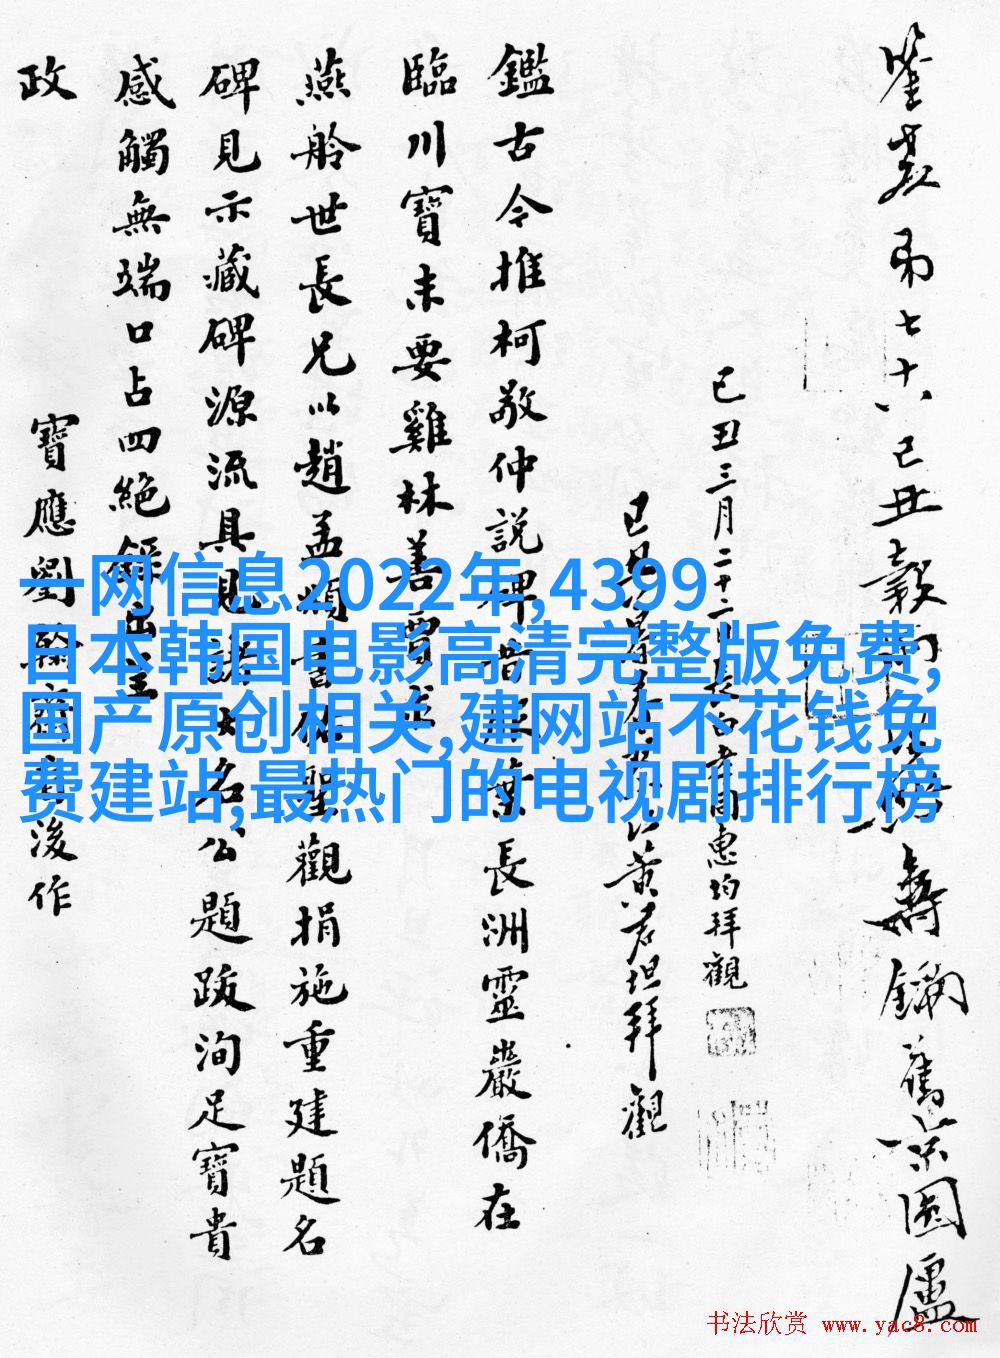 鑑古今推柯敬仲說碑昔
長洲靈巖僑在
臨川寶未要雞林善賈
燕舲世長兄以趙孟頫書
聖觀捐施重建題名
碑見示藏碑源流具見諸
名公題跋洵足寶貴
感觸無端口占四絕錄
政
寶應劉
後作
己丑三月二十二日長白
惠均拜觀
黃君坦拜觀
弟七十八己丑
一网信息2022年,4399
日本韩国电影高清完整版免费,
国产原创相关,建网站不花钱免
费建站,最热门的电视剧排行榜
书法欣赏 www.yac8.com